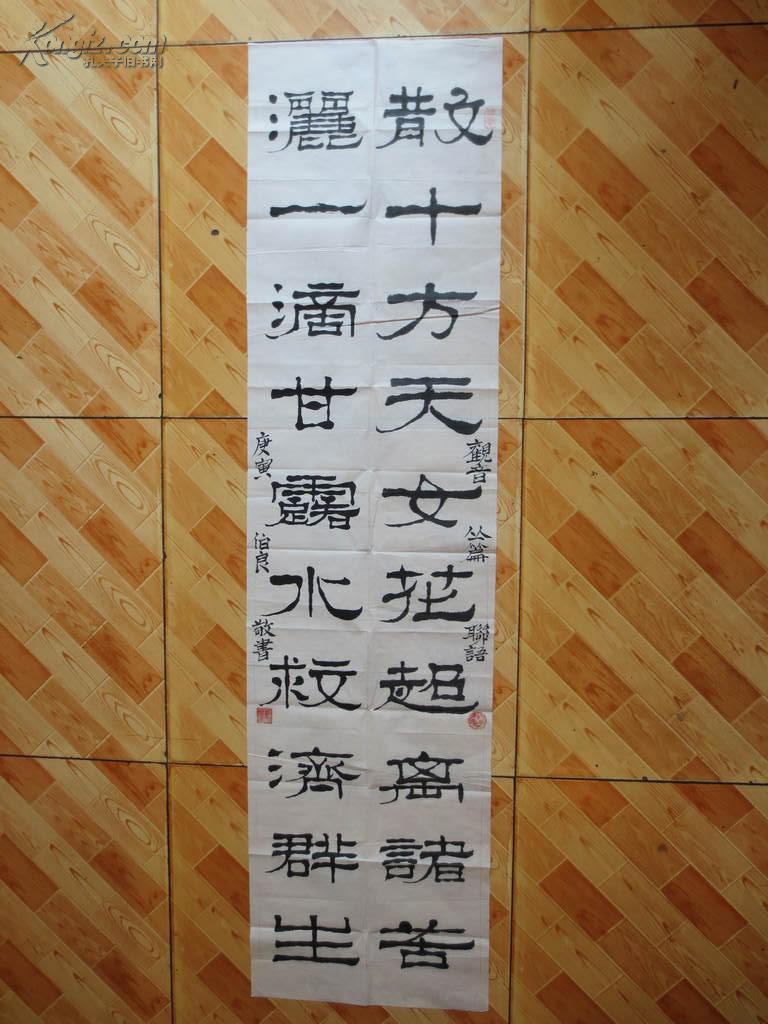 散十方天女花超离諸苦
觀音 丛篇 聯語
灑一滴甘露水救濟群生
庚寅 伯良 敬書
Kongfz.com
孔夫子旧书网